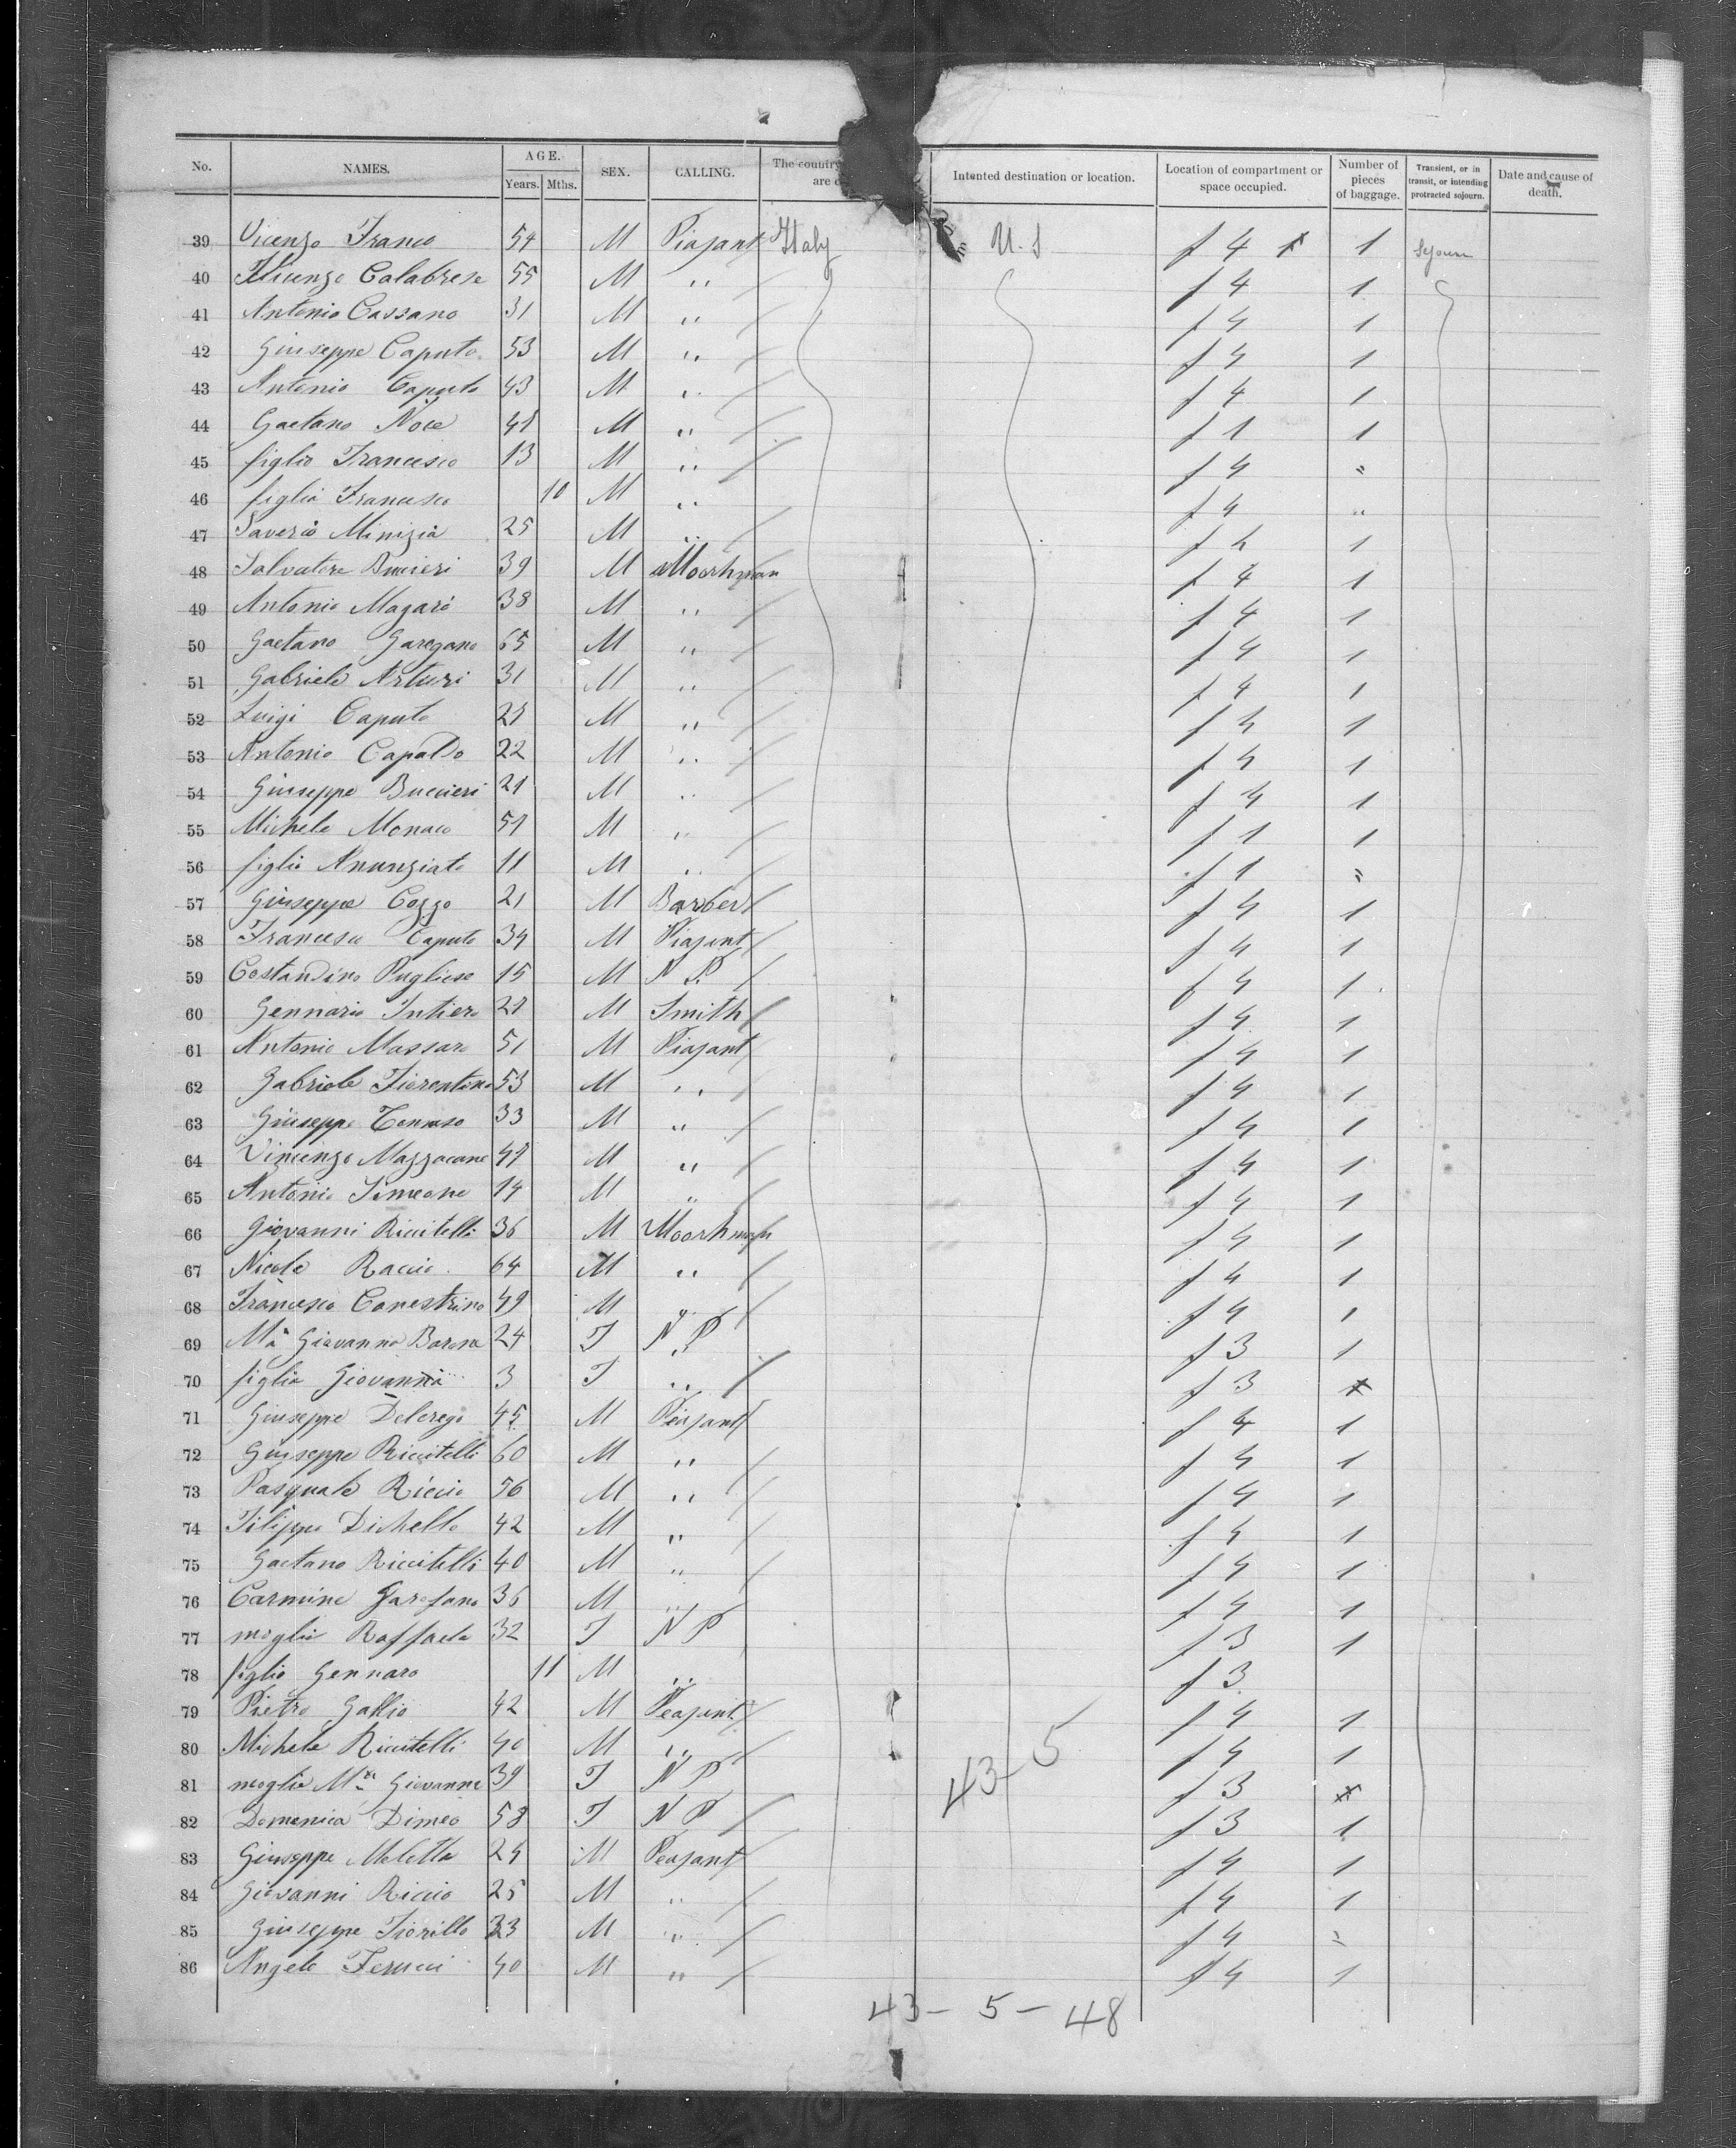 No. NAMES. AGE. Years. Mths. SEX. CALLING. The country are Intented destination or location. Location of compartment or space occupied. Number of pieces of baggage. Transient, or in transit, or intending protracted sojourn. Date and cause of death.
39 Vicenzo Franco 54 M Piasant Italy U. S f 4 1 Sejourn
40 Calabrese 55 M " f 4 1
41 Antonio Cassano 31 M " f 4 1
42 Giuseppe Caputo 53 M " f 4 1
43 Antonio Caputo 43 M " f 4 1
44 Gaetano Noce M " f 1 1
45 figlio Francesco 13 M " f 4 "
46 figlio Francesco 10 M " f 4 "
47 Saverio Minizia 25 M " f 4 1
48 Salvatore 39 M f 4 1
49 Antonio Magaró 38 M " f 4 1
50 Gaetano 65 M " f 4 1
51 Gabriele Arturi 31 M " f 4 1
52 Luigi Caputo M " f 4 1
53 Antonio Capaldo 22 M " f 4 1
54 Giuseppe Buccieri 21 M " f 4 1
55 Michele Monaco 51 M " f 1 1
56 figlio Anunziato 11 M " f 1 "
57 Giuseppe Cozzo 21 M Barber f 4 1
58 Francesco Caputo 34 M Piasant f 4 1
59 Costandino Pugliese 15 M N P f 4 1
60 Gennario Intiero M Smith f 4 1
61 Antonio Massaro 51 M Piasant f 4 1
62 Gabriele Fiorentino 53 M " f 4 1
63 Giuseppe 33 M " f 4 1
64 Vincenzo Mazzacane M " f 4 1
65 Antonio Simeone 14 M " f 4 1
66 Giovanni Riccitelli 36 M f 4 1
67 Nicola 64 M " f 4 1
68 Francesco Canestrino 49 M " f 4 1
69 Mª Giovanna Barone 24 F N P f 3 1
70 figlia Giovanna 3 F " f 3
71 Giuseppe Delorego 45 M Peasant f 4 1
72 Giuseppe Riccitelli 60 M " f 4 1
73 Pasquale Riccio 56 M " f 4 1
74 Filippo Dichello 42 M " f 4 1
75 Gaetano Riccitelli 40 M " f 4 1
76 Carmine Garofano 36 M " f 4 1
77 moglie Raffaela 32 F N P f 3 1
78 figlio Gennaro 11 M " f 3
79 Pietro Gallio 42 M Peasant f 4 1
80 Michele Riccitelli 40 M " f 4 1
81 moglie Mª Giovanna 39 F N P f 3
82 Domenica Dimeo 58 F N P f 3 1
83 Giuseppe Meletta 24 M Peasant f 4 1
84 Giovanni Riccio 25 M " f 4 1
85 Giuseppe Fiorillo 23 M " f 4 "
86 Angelo Ferucci 40 M " f 4 1
43-5
43 - 5 - 48